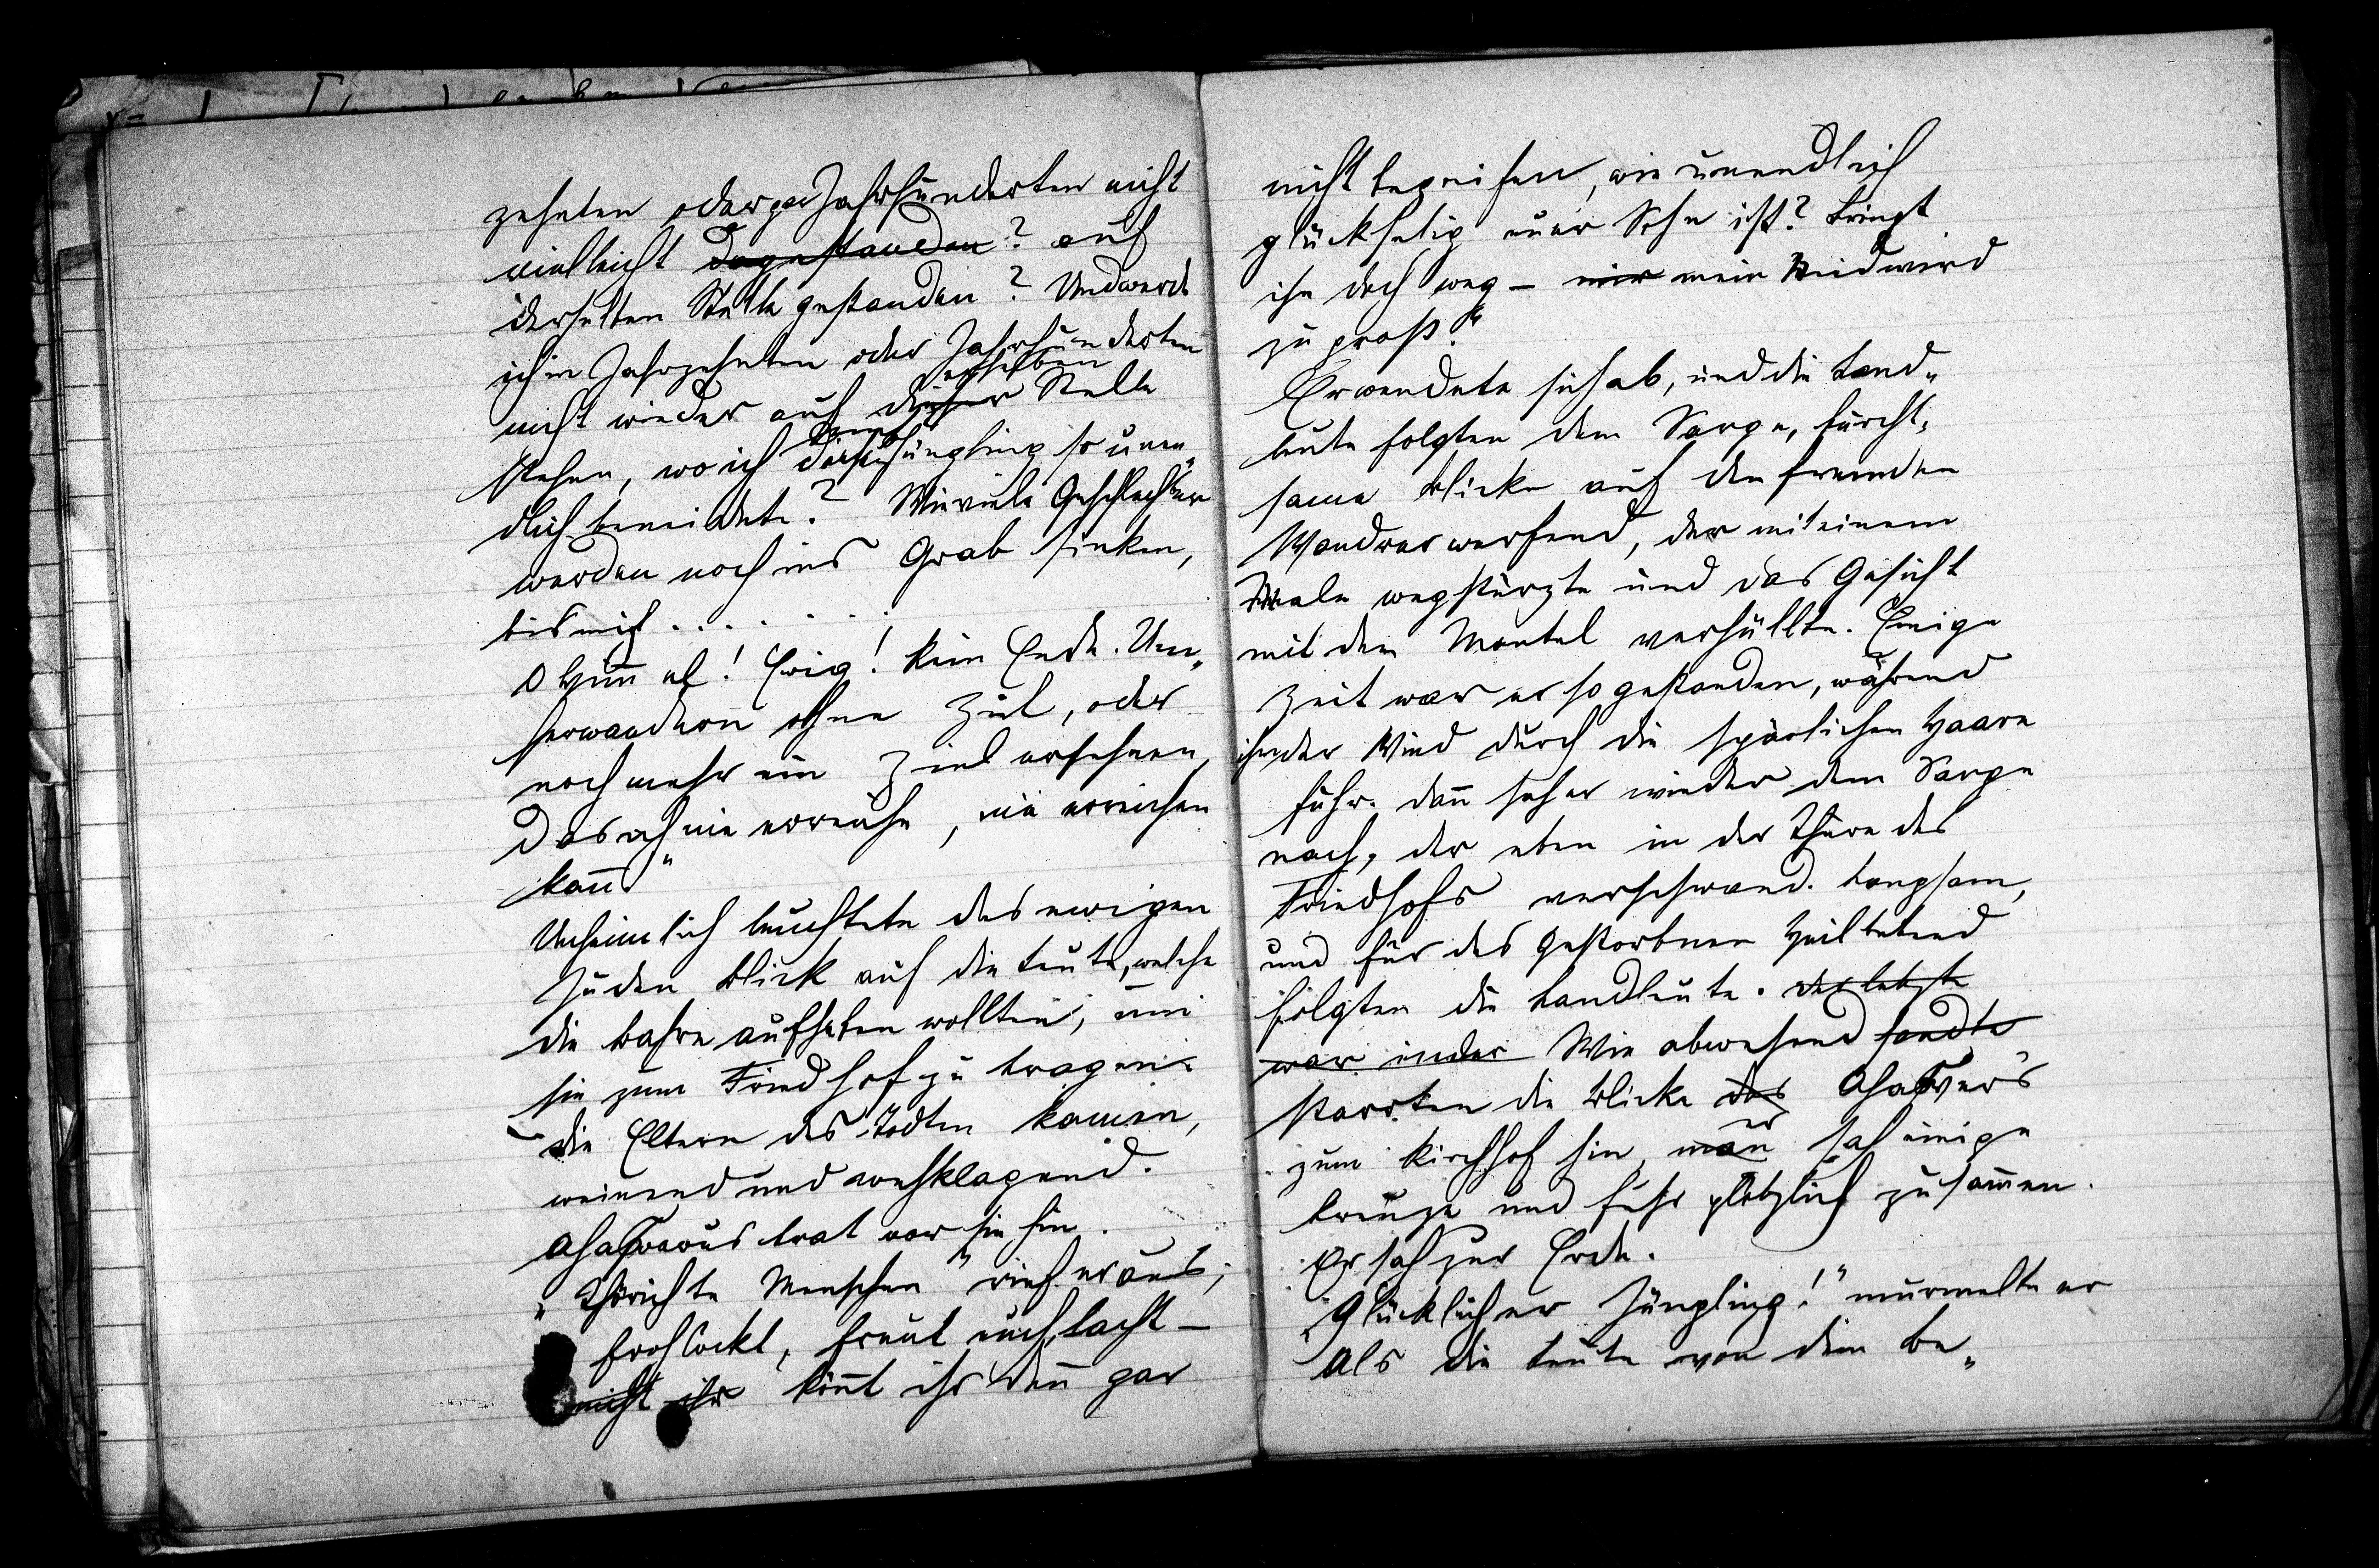 zehnten oder gar Jahrhunderten nicht
vielleicht dagestanden? auf
derselben Stelle gestanden? Und werde
ich in Jahrzehnten oder Jahrhunderten
nicht wieder auf dieser derselben Stelle
stehen, wo ich Jüngling so unen„
dlich beneidete? Wieviele Geschlechter
werden noch ins Grab sinken,
bis mich . . . . . . .
O Himmel! Ewig! Kein Ende. Um„
herwandern ohne Ziel, oder
noch mehr ein Ziel ersehnen,
das ich nie erreiche, nie erreichen
kann“
Unheimlich leuchtete des ewigen
Juden Blick auf die Leute, welche
die Bahre aufheben wollten, um
sie zum Friedhof zu tragen.
die Eltern des Todten kamen,
weinend und wehklagend.
Ahasverus trat vor sie hin.
„Thörichte Menschen“ rief er aus,
frohlockt, freut euch, lacht –
nicht ihr könnt ihr denn gar
nicht begreifen, wie unendlich
glückselig euer Sohn ist? Bringt
ihn doch weg – mir mein Neid wird
zu groß.“
Er wendete sich ab, und die Land„
leute folgten dem Sarge, furcht„
same Blicke auf den fremden
Wandrer werfend, der mit einem
Male wegstürzte und das Gesicht
mit dem Mantel verhüllte. Einige
Zeit war er so gestanden, während
ihm der Wind durch die spärlichen Haare
fuhr. dann sah er wieder dem Sarge
nach, der eben in der Thüre des
Friedhofs verschwand. Langsam,
und für des Gestorbnen Heil betend
folgten die Landleute. der letzte
war in der Wie abwesend sandte
starrten die Blicke des Ahasvers
zum Kirchhof hin, man er sah einige
Kreuze und fuhr plötzlich zusammen.
Er sah zur Erde.
„Glücklicher Jüngling!“ murmelte er
als die Leute von dem Be„